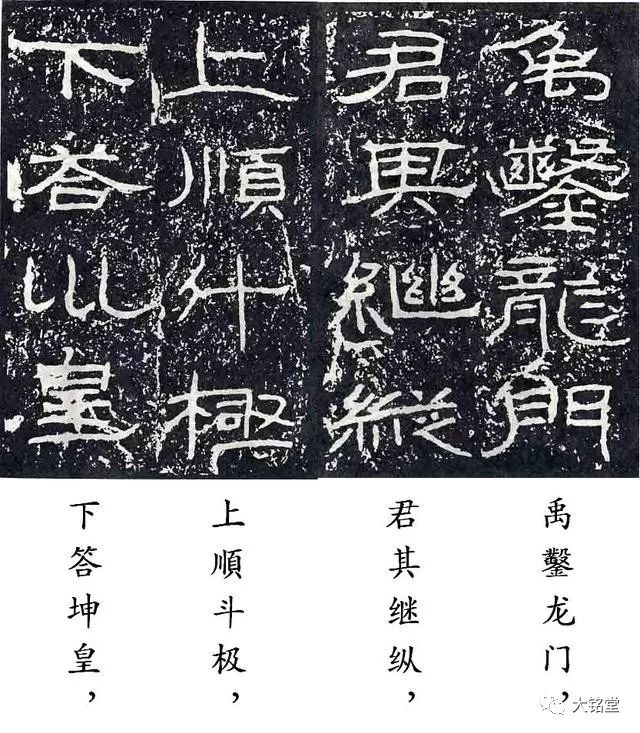 禹鑿龍門
君其繼縱
上順斗極
下荅巛皇
禹鑿龙门，
君其继纵，
上順斗极，
下答坤皇，
大铭堂